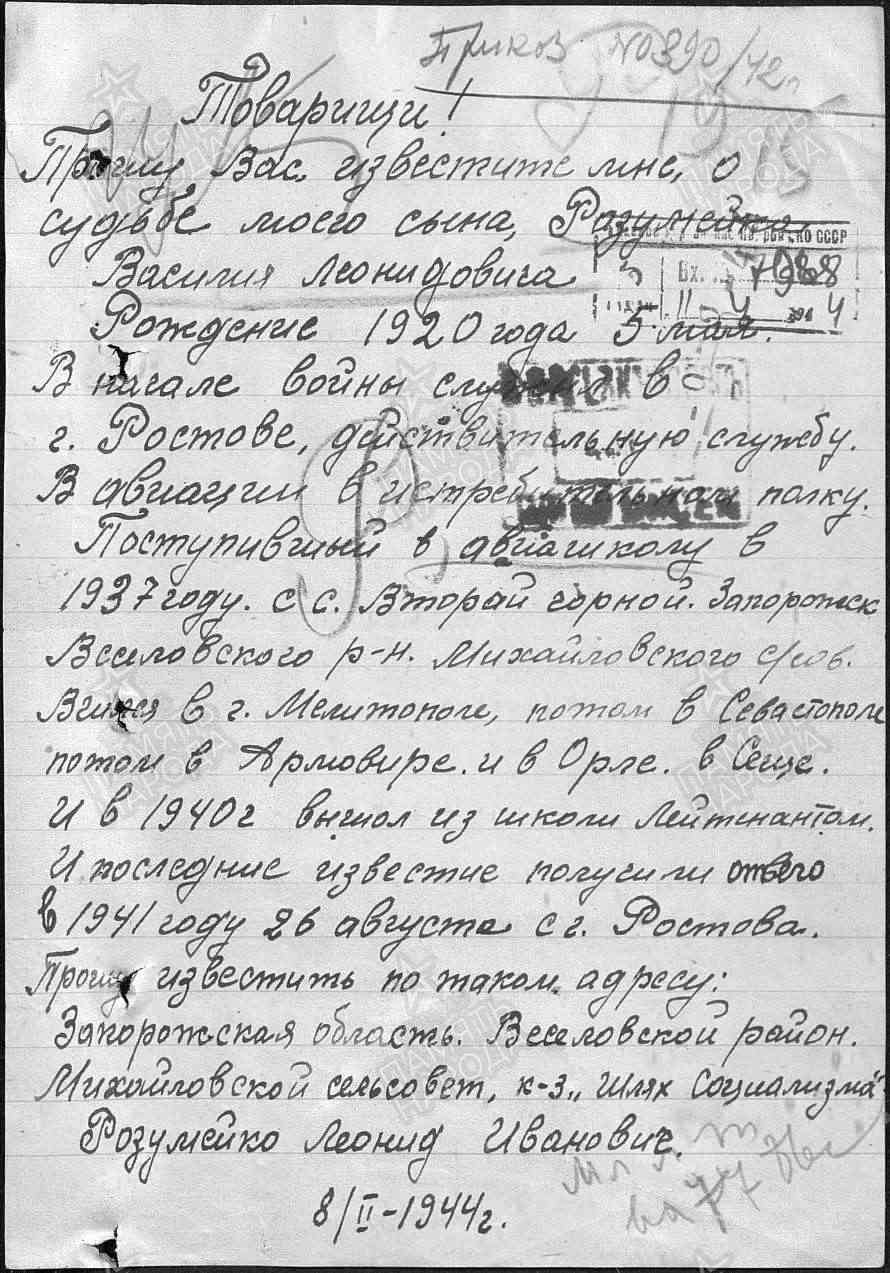 Приков №0390/42г
Товарищи!
Прошу Вас, известите мне, о
судьбе моего сына, Розумейко
Василия Леонидовича
Рождение 1920 года 5 мая.
В начале войны служил в
г. Ростове, действительную службу.
В авиации в истребительном полку.
Поступивший в авиашколу в
1937 году. с с. Вторай горной. Запорожск
Веселовского р-н. Михайловского с/сов.
Вчился в г. Мелитополе, потом в Севастополе
потом в Армовире. и в Орле. в Сеще.
И в 1940г вышол из школи Лейтенантом.
И последние известие получили отвего
в 1941 году 26 августа с г. Ростова.
Прошу известить по таком адресу:
Запорожская область. Веселовской район.
Михайловской сельсовет, к-з „Шлях Социализма"
Розумейко Леонид Иванович.
8/II-1944г.